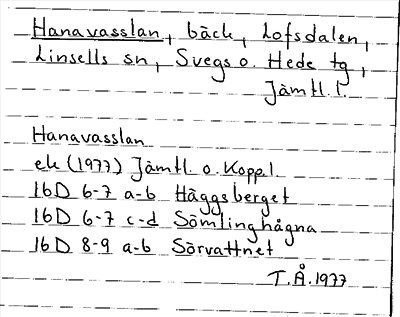 Hanavasslan, bäck, Lofsdalen,
Linsells sn, Svegs o. Hede tg,
Jämtl. l.
Hanavasslan
ek (1977) Jämtl. o. Koppl.
16D 6-7 a-b Häggsberget
16D 6-7 c-d Sömlinghågna
16D 8-9 a-b Sörvattnet
T.Å. 1977